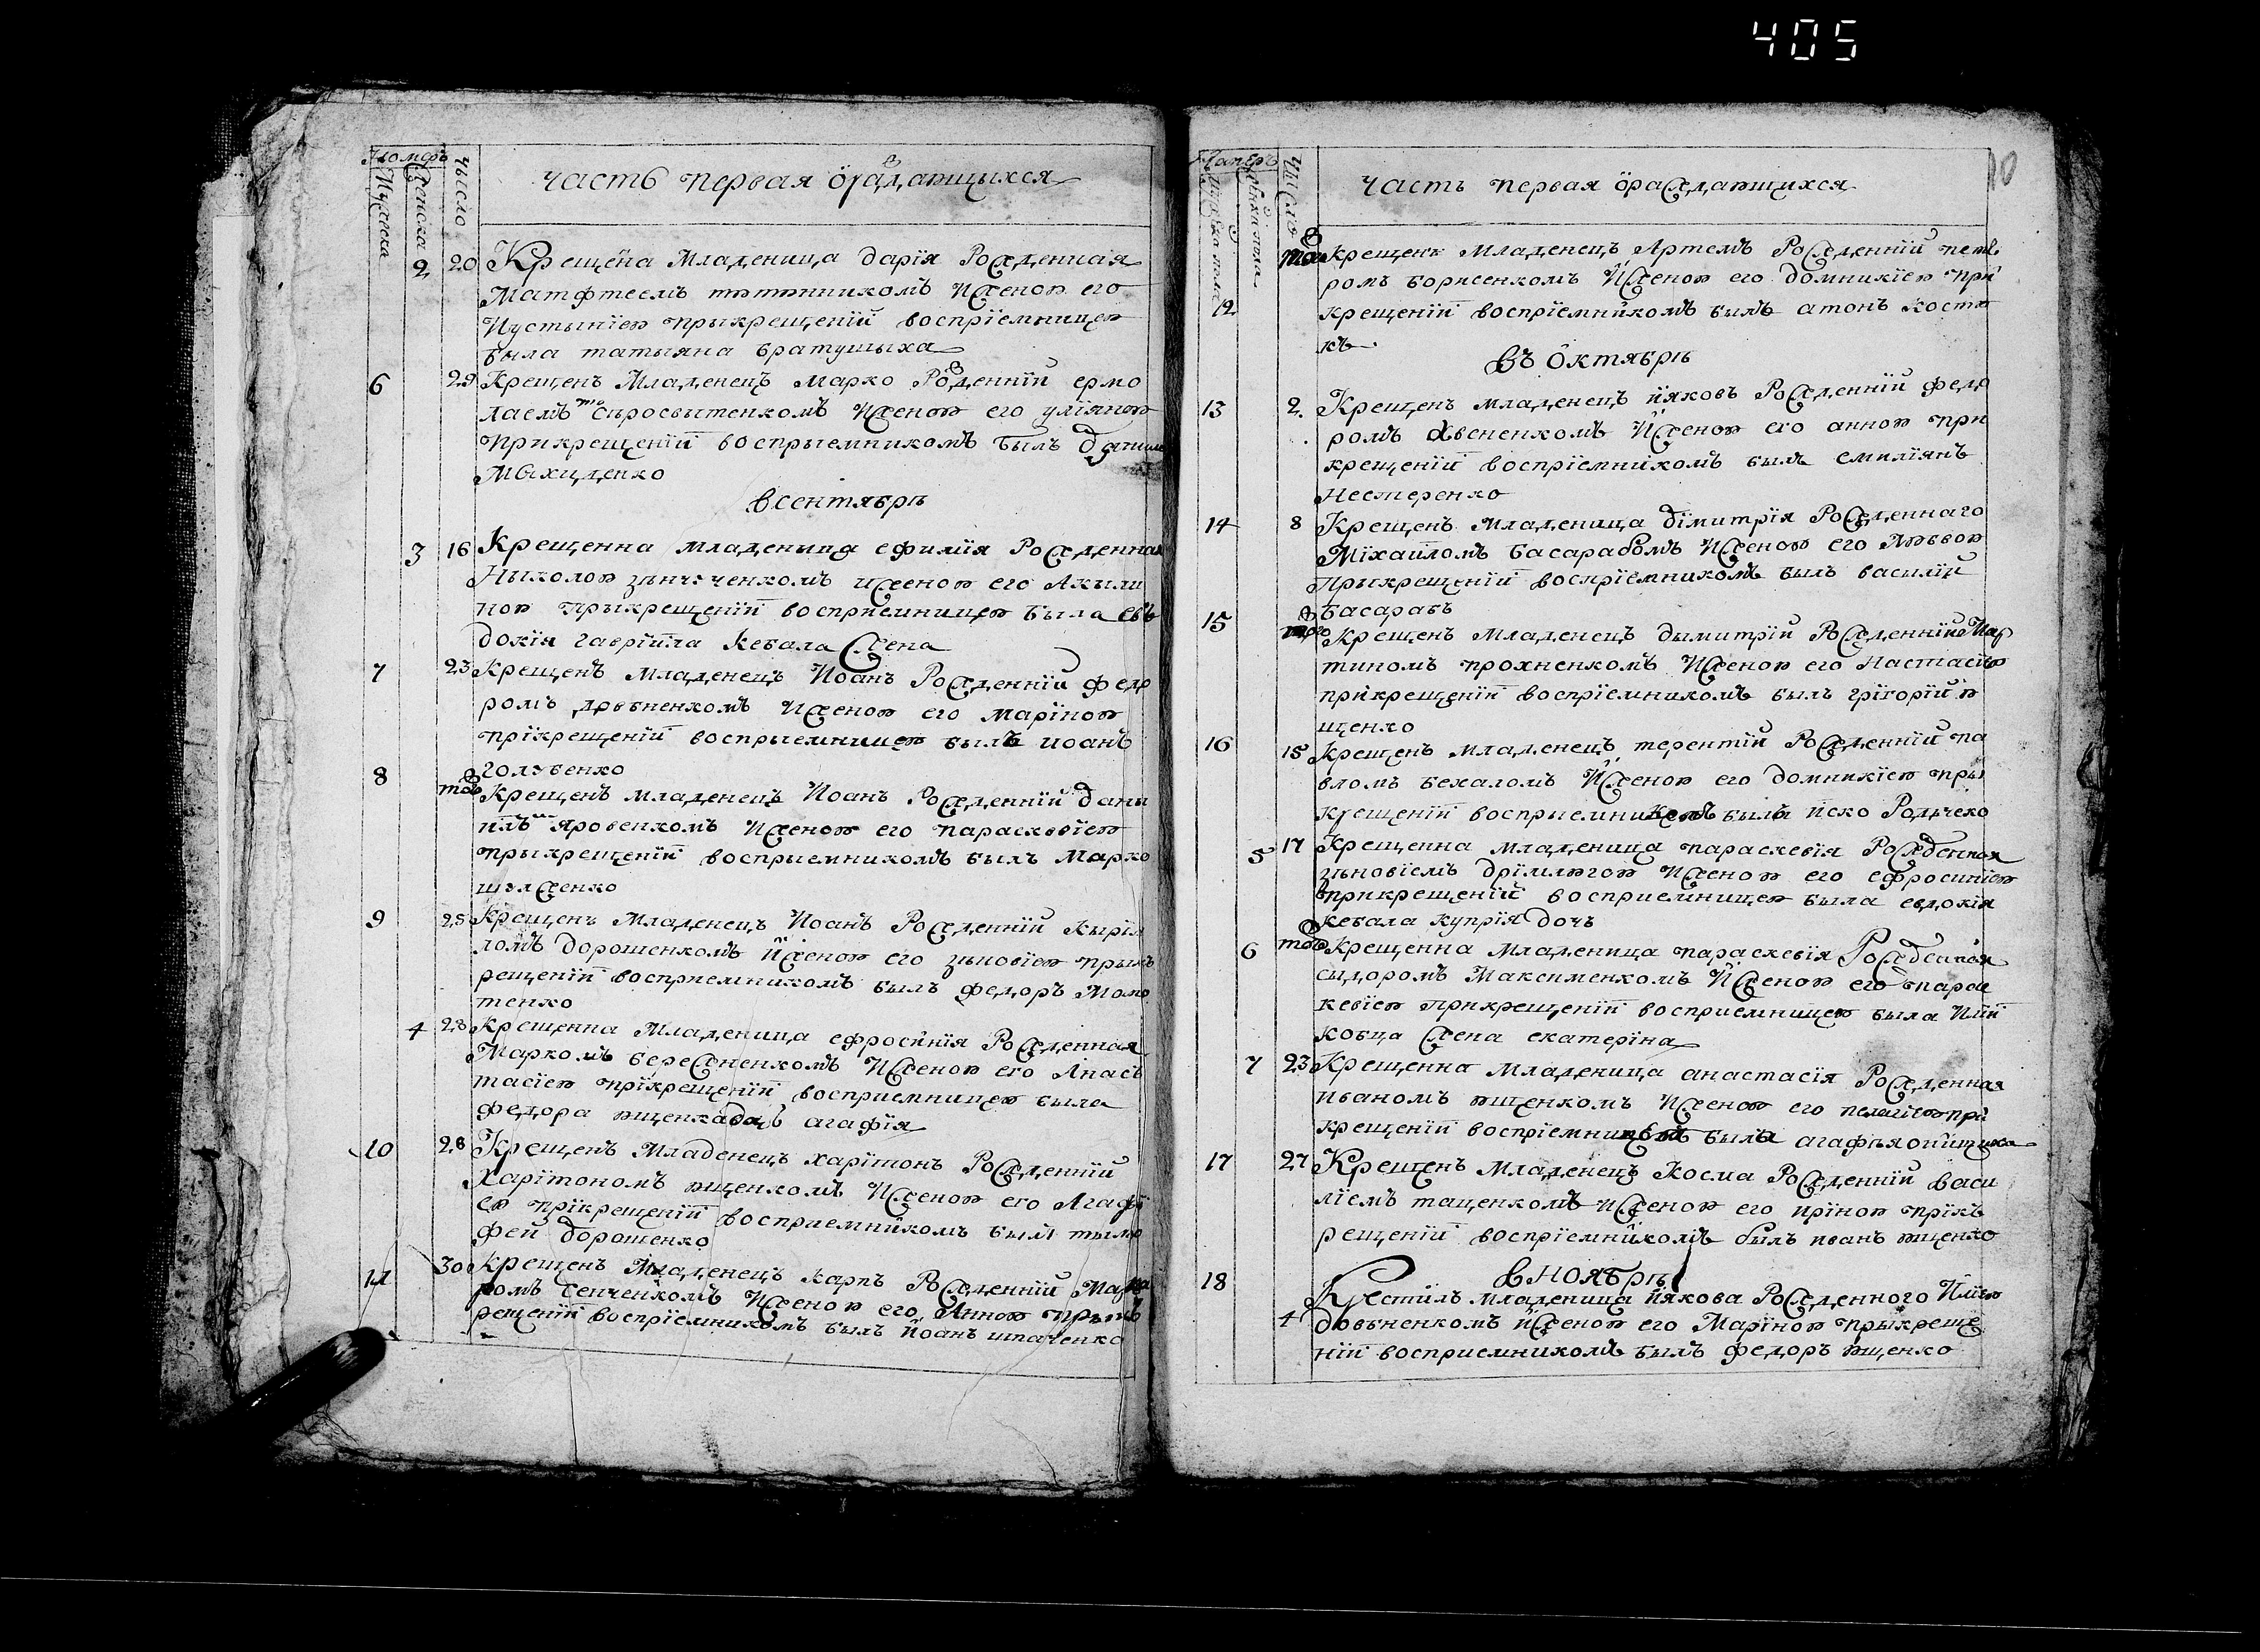 405
Номеръ
Мужеска
Женска
Число
часть первая о раждающыхся
2 20 Крещена Младеница дарїя Рожденная
Матфтеемъ тютюнникомъ И женою его
Иустынїею прыкрещенїи воспрїемницею
была татыяна братушыха
6 29 Крещенъ Младенецъ марко Рожденнїи ермо
лаемъ сыросвытенкомъ И женою его улїяною
прикрещенїи воспрыемникомъ былъ данило
Мыхиденко
в сентябрѣ
3 16 Крещенна младеныца ефимїя Рожденная
Ныколою зѣнченкомъ и женою его Акыли
ною прыкрещенїи восприемницею была евъ
докїя гаврїила кебала жена
7 23 Крещенъ младенецъ Иоанъ Рожденнїи федо
ромъ довъненкомъ И женою его марїною
прїкрещенїи воспрыемницею былъ иоанъ
голубенко
8 тогож Крещенъ младенецъ Иоанъ Рожденнїи даны
иломъ яровенкомъ И женою его парасковїею
прыкрещенїи воспрыемникомъ былъ Марко
шулженко
9 25 Крещенъ Младенецъ Иоанъ Рожденнїи Кырїл
ломъ дорошенкомъ И женою его зѣновїею прык
рещенїи восприемникомъ былъ федоръ Моло
тенко
4 28 Крещенна Младеница ефросинїя Рожденная
Маркомъ бережненкомъ И женою его Анасъ
тасїею прїкрещенїи воспрыемницею была
федора ющенка дочь агафїя
10 28 Крещенъ Младенецъ харїтонъ Рожденнїи
Харїтономъ ющенкомъ И женою его Агафї
ею прїкрещенїи восприемникомъ былъ тымо
фей дорошенко
11 30 крещенъ Младенецъ карпъ Рожденнїи Мака
ромъ сенченкомъ И женою его Анною прык
рещенїи воспрїемникомъ былъ Иоанъ шпаченко
10
Число
часть первая о раждающихся
12 тогож крещенъ Младенецъ Артемъ Рожденнїи пет
ромъ борисенкомъ И женою его домникїею при
крещенїи воспрїемникомъ былъ атонъ костю
къ
Въ Октябрѣ
13 2. Крещенъ младенецъ Ияковъ Рожденнїи федо
ромъ явененкомъ И женою его анною при
крещенїи воспрїемникомъ былъ емилїянъ
Нестеренко
14 8 Крещенъ младеница дїмитрїя Рожденнаго
Мїхаиломъ басарабомъ И женою его Любвою
Прыкрещенїи воспрїемникомъ былъ василїи
басарабъ
15 тогож Крещенъ Младенецъ дымитрїи Рожденнїи Мар
тиномъ прохненкомъ И женою его Настасїею
прикрещенїи воспрїемникомъ былъ грїгорїи ю
щенко
16 15 крещенъ младенецъ терентїи Рожденнїи па
вломъ бехаломъ И женою его домникїею пры
крещенїи воспрыемникомъ былъ иско Родыченко
5 17 Крещенна младеница параскевїя Рожденная
зѣновїемъ дрїмлюгою И женою его ефросинїею
прикрещенїи восприемницею была евдокїя
кебала купрїя дочь
6 тогож Крещенна младеница параскевїя Рожденная
сыдоромъ Максименкомъ И женою его парас
кевїею прикрещенїи восприемницею была Илїи
кобца жена екатерїна
7 23 Крещенна младеница анастасїя Рожденная
иваномъ ющенкомъ И женою его пелагїею при
крещенїи воспрїемницею была агафья
17 27 Крещенъ Младенецъ Косма Рожденнїи васи
лїемъ таценкомъ И женою его ирїною прїкъ
рещенїи воспрїемникомъ былъ иванъ ющенко
в Ноябрѣ
18 4 Крестилъ младеница Иякова Рожденного Илїею
довъненкомъ И женою его Марїною прыкреще
нїи восприемникомъ былъ федоръ ющенко